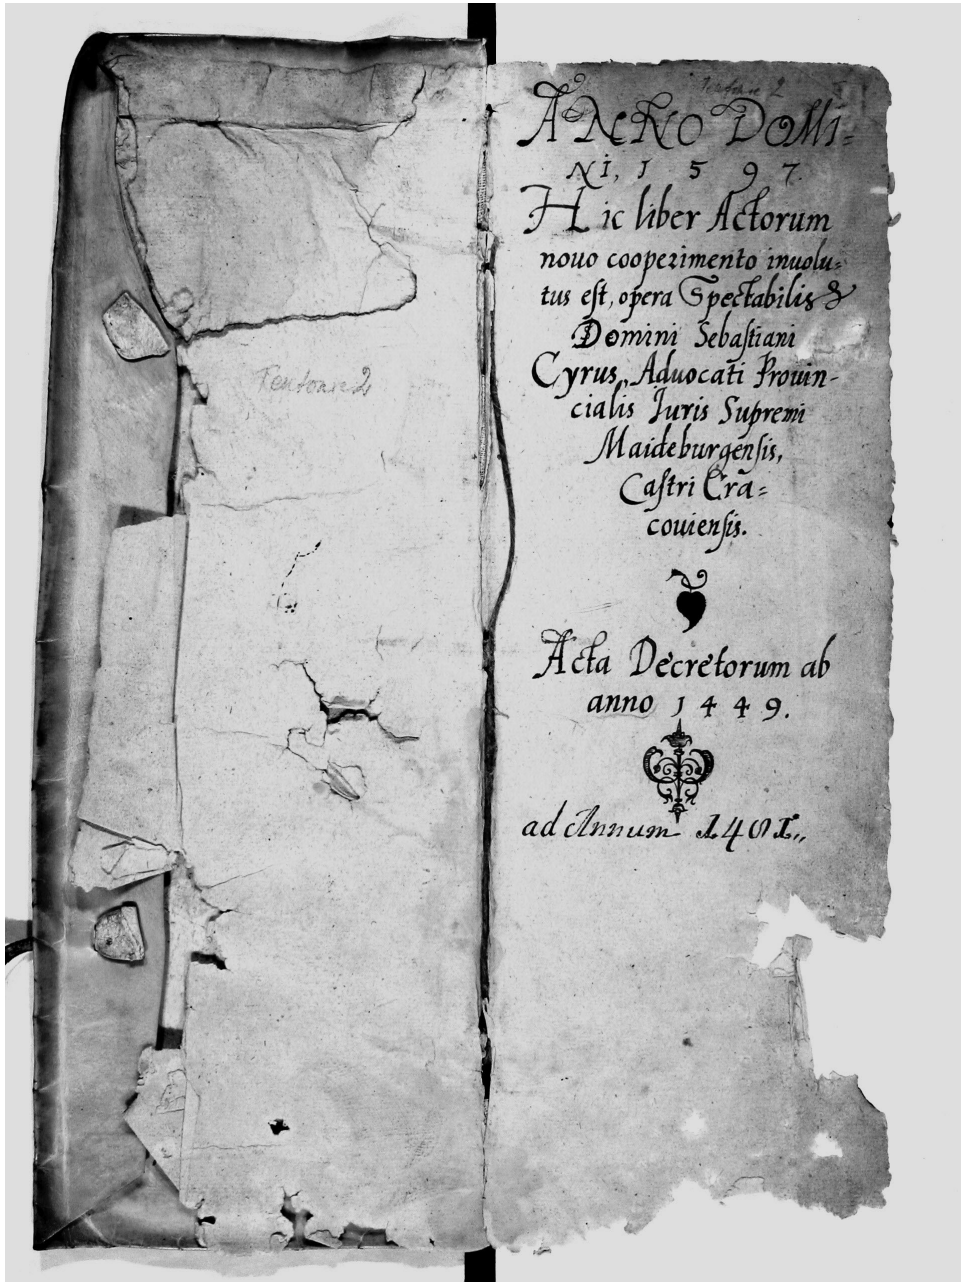 ANNO DOMI=
NI, 1597.
Hic liber Actorum
nouo cooperimento inuolu=
tus est, opera Spectabilis &
Domini Sebastiani
Cyrus, Aduocati Prouin-
cialis Juris Supremi
Maideburgensis,
Castri Cra=
couiensis.
Acta Decretorum ab
anno 1449.
ad Annum 1481.,